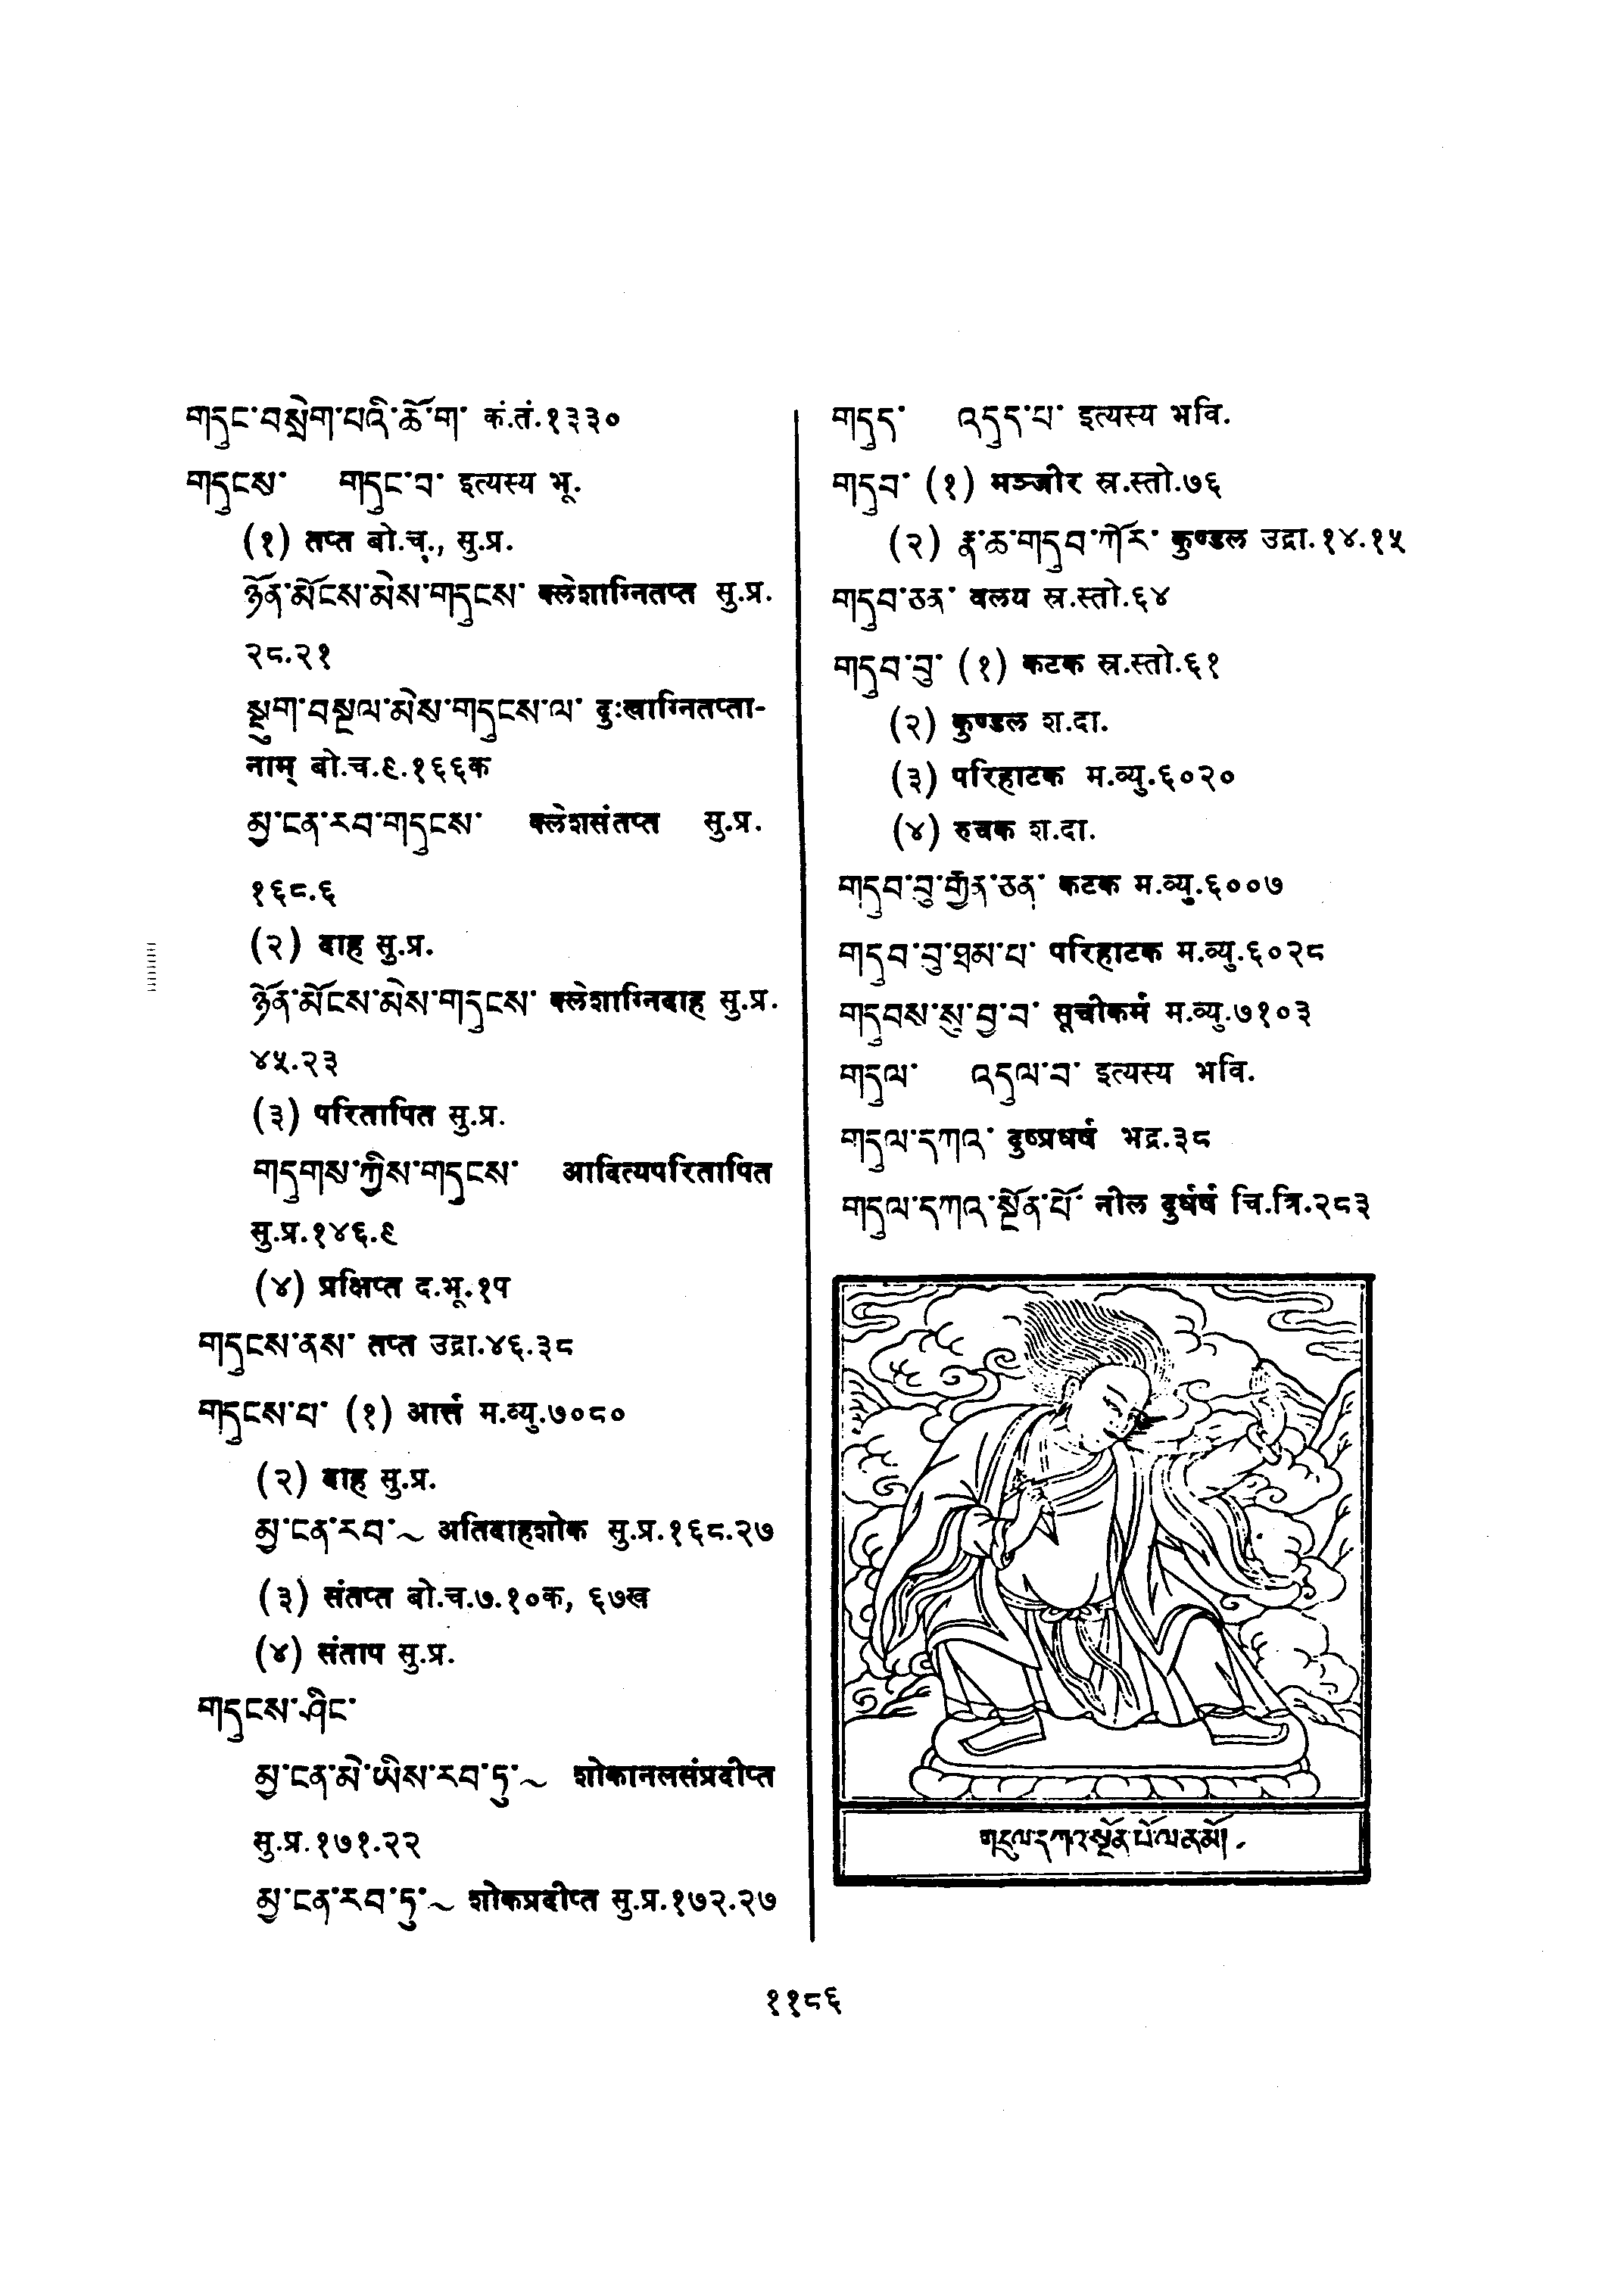 གདུང་བསྲེག་པའི་ཆོ་ག་ कं.तं.१३३०
གདུངས་ གདུང་བ་ इत्यस्य भू.
(१) तप्त बो.च., सु.प्र.
ཉོན་མོངས་མེས་གདུངས་ क्लेशाग्नितप्त सु.प्र.
२८.२१
སྡུག་བསྔལ་མེས་གདུངས་ལ་ दुःखाग्नितप्ता-
नाम् बो.च.९.१६६क
མྱ་ངན་རབ་གདུངས་ क्लेशसंतप्त सु.प्र.
१६८.६
(२) दाह सु.प्र.
ཉོན་མོངས་མེས་གདུངས་ क्लेशाग्निदाह सु.प्र.
४५.२३
(३) परितापित सु.प्र.
གདུགས་ཀྱིས་གདུངས་ आदित्यपरितापित
सु.प्र.१४६.९
(४) प्रक्षिप्त द.भू.१प
གདུངས་ནས་ तप्त उद्रा.४६.३८
གདུངས་པ་ (१) आर्त्तं म.व्यु.७०८०
(२) दाह सु.प्र.
མྱ་ངན་རབ་~ अतिदाहशोक सु.प्र.१६८.२७
(३) संतप्त बो.च.७.१०क, ६७ख
(४) संताप सु.प्र.
གདུངས་ཤིང་
མྱ་ངན་མེ་ཡིས་རབ་ཏུ་~ शोकानलसंप्रदीप्त
सु.प्र.१७१.२२
མྱ་ངན་རབ་ཏུ་~ शोकप्रदीप्त सु.प्र.१७२.२७
གདུད་ འདུད་པ་ इत्यस्य भवि.
གདུབ་ (१) मञ्जीर स्र.स्तो.७६
(२) རྣ་ཆ་གདུབ་ཀོར་ कुण्डल उद्रा.१४.१५
གདུབ་ཅན་ वलय स्र.स्तो.६४
གདུབ་བུ་ (१) कटक स्र.स्तो.६१
(२) कुण्डल श.दा.
(३) परिहाटक म.व्यु.६०२०
(४) रुचक श.दा.
གདུབ་བུ་རྒྱན་ཅན་ कटक म.व्यु.६००७
གདུབ་བུ་ཐམ་པ་ परिहाटक म.व्यु.६०२८
གདུབས་སུ་བྱ་བ་ सूचीकर्म म.व्यु.७१०३
གདུལ་ འདུལ་བ་ इत्यस्य भवि.
གདུལ་དཀའ་ दुष्प्रधर्ष भद्र.३८
གདུལ་དཀའ་སྔོན་པོ་ नील दुर्धर्ष चि.त्रि.२८३
གདུལ་དཀའ་སྔོན་པོ་ལ་ན་མོ།
११८६